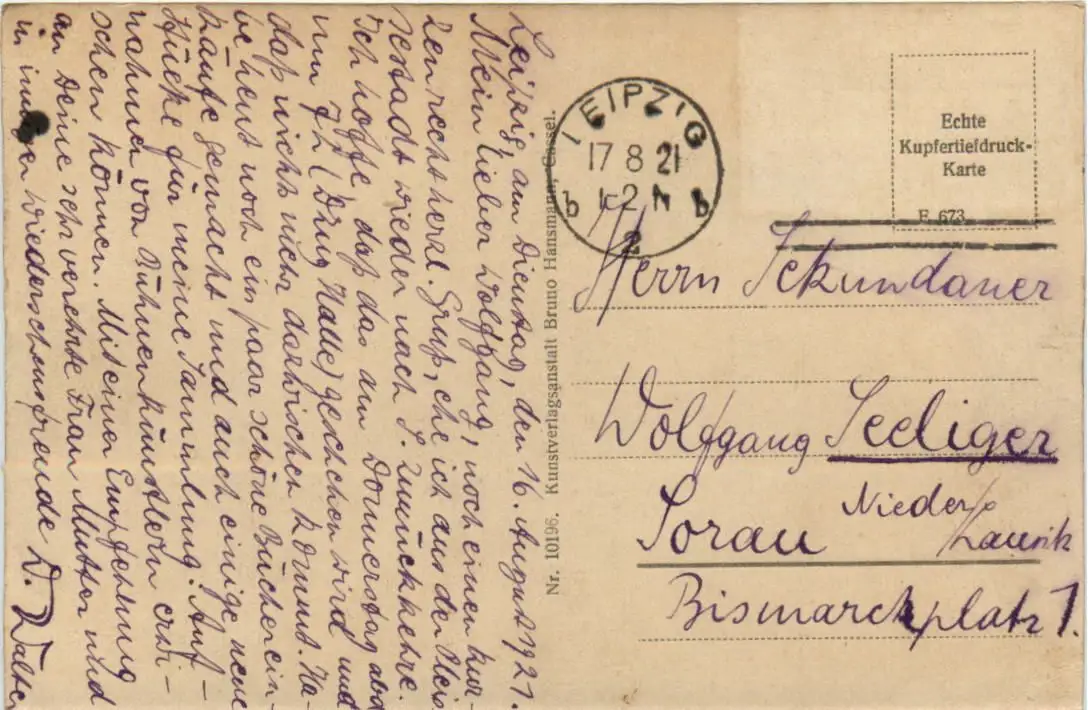 Leipzig, am Dienstag, den 16. August 1921.
Mein lieber Wolfgang, noch einen kur-
zen recht herzl. Gruß, ehe ich aus der
stadt wieder nach S. zurückkehre.
Ich hoffe daß das am Donnerstag abd
um 7 h (Drug Halle) geschehen wird und
daß nichts mehr dazwischen kommt. Ha-
be heut noch ein paar schöne Bücherein-
käufe gemacht und auch einige neue
Stücke für meine Sammlung: Auf-
nahmen von Bühnenkünstlern erwi-
schen können. Mit einer Empfehlung
an Deine sehr verehrte Frau Mutter und
in Wiedersehensfreude D. Walter
Nr. 10196. Kunstverlagsanstalt Bruno Hansmann, Cassel.
LEIPZIG
17 8 21
1-2 N
b b
2
Echte
Kupfertiefdruck-
Karte
F. 673
Herrn Sekundaner
Wolfgang Seeliger
Sorau Nieder/
Lausitz
Bismarckplatz 1.